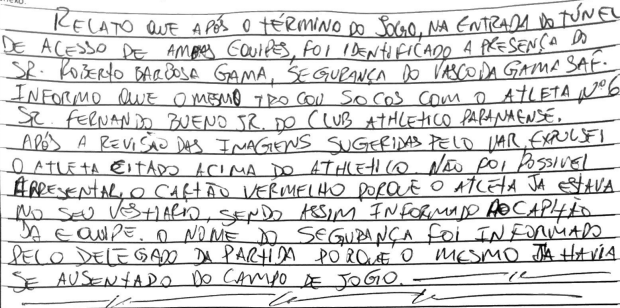 RELATO QUE APÓS O TÉRMINO DO JOGO, NA ENTRADA DO TÚNEL
DE ACESSO DE AMBAS EQUIPES, FOI IDENTIFICADO A PRESENÇA DO
SR. ROBERTO BARBOSA GAMA, SEGURANÇA DO VASCO DA GAMA SAF.
INFORMO QUE O MESMO TROCOU SOCOS COM O ATLETA Nº 6
SR. FERNANDO BUENO JR. DO CLUB ATHLETICO PARANAENSE.
APÓS A REVISÃO DAS IMAGENS SUGERIDAS PELO VAR, EXPULSEI
O ATLETA CITADO ACIMA DO ATHLETICO NÃO FOI POSSIVEL
APRESENTAR, O CARTÃO VERMELHO PORQUE O ATLETA JA ESTAVA
NO SEU VESTIARIO, SENDO ASSIM INFORMADO AO CAPITÃO
DA EQUIPE. O NOME DO SEGURANÇA FOI INFORMADO
PELO DELEGADO DA PARTIDA PORQUE O MESMO JA HAVIA
SE AUSENTADO DO CAMPO DE JOGO.